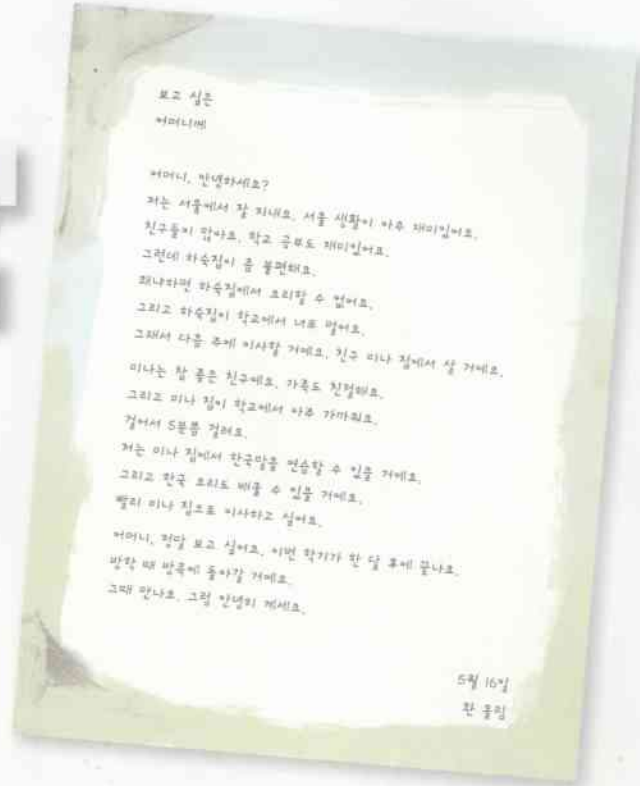 보고 싶은
어머니께
어머니, 안녕하세요?
저는 서울에서 잘 지내요. 서울 생활이 아주 재미있어요.
친구들이 많아요. 학교 공부도 재미있어요.
그런데 하숙집이 좀 불편해요.
왜냐하면 하숙집에서 요리할 수 없어요.
그리고 하숙집이 학교에서 너무 멀어요.
그래서 다음 주에 이사할 거예요. 친구 미나 집에서 살 거예요.
미나는 참 좋은 친구예요. 가족도 친절해요.
그리고 미나 집이 학교에서 아주 가까워요.
걸어서 5분쯤 걸려요.
저는 미나 집에서 한국말을 연습할 수 있을 거예요.
그리고 한국 요리도 배울 수 있을 거예요.
빨리 미나 집으로 이사하고 싶어요.
어머니, 정말 보고 싶어요. 이번 학기가 한 달 후에 끝나요.
방학 때 방콕에 돌아갈 거예요.
그때 만나요. 그럼 안녕히 계세요.
5월 16일
완 올림